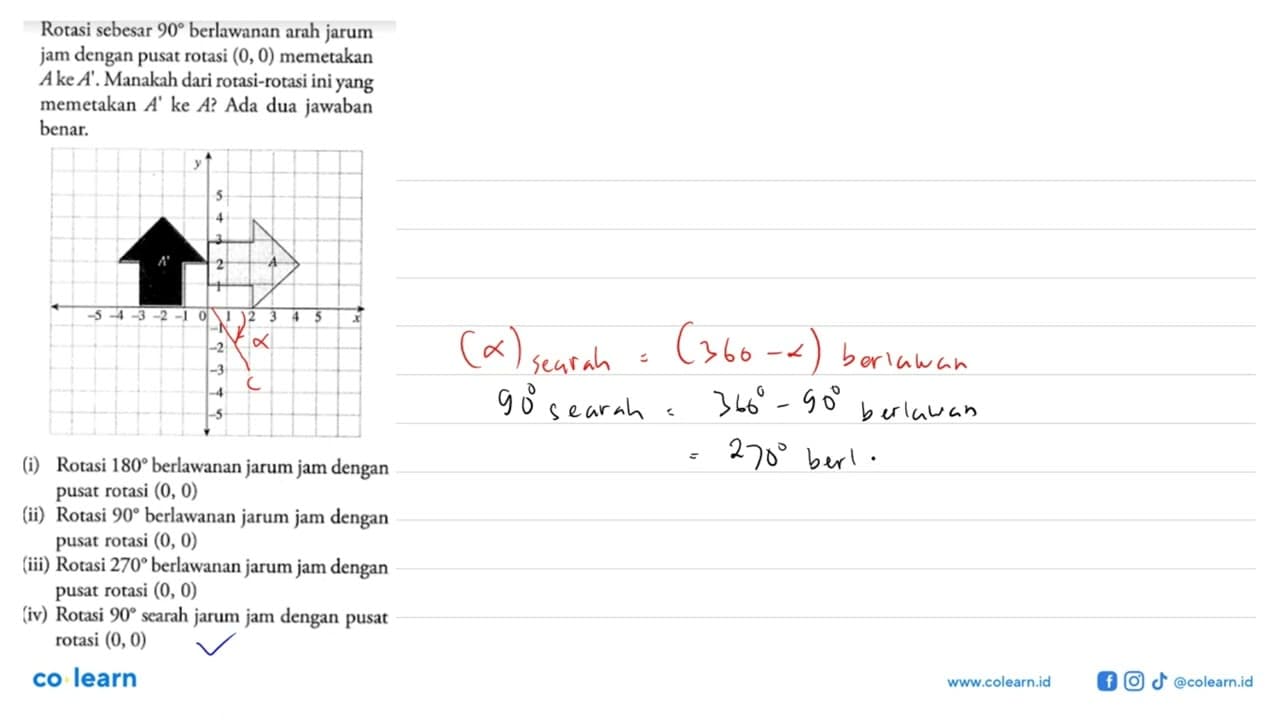 Rotasi sebesar 90° berlawanan arah jarum
jam dengan pusat rotasi (0, 0) memetakan
A ke A'. Manakah dari rotasi-rotasi ini yang
memetakan A' ke A? Ada dua jawaban
benar.
y
5
4
3
A'
2
A
1
-5 -4 -3 -2 -1 0 1 2 3 4 5 x
-1
-2
α
-3
-4
-5
(α) searah = (360 - α) berlawan
90° searah = 360° - 90° berlawan
= 270° berl.
(i) Rotasi 180° berlawanan jarum jam dengan
pusat rotasi (0, 0)
(ii) Rotasi 90° berlawanan jarum jam dengan
pusat rotasi (0, 0)
(iii) Rotasi 270° berlawanan jarum jam dengan
pusat rotasi (0, 0)
(iv) Rotasi 90° searah jarum jam dengan pusat
rotasi (0, 0)
co learn
www.colearn.id
@colearn.id